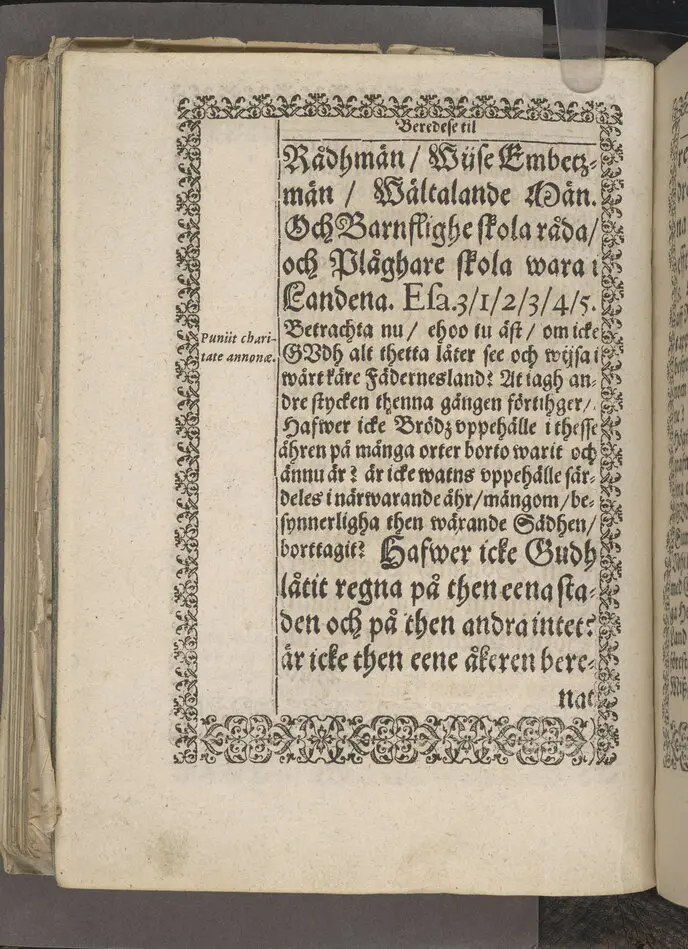 Beredese til
Rådhmän / Wijse Embetz-
män / Wältalande Män.
Och Barnslighe skola råda /
och Plåghare skola wara i
Landena. Esa.3/1/2/3/4/5.
Puniit chari-
tate annonæ.
Betrachta nu / ehoo tu äst / om icke
GVdh alt thetta låter see och wijsa i
wårt käre Fädernesland? At iagh an-
dre stycken thenna gången förtihger /
Hafwer icke Brödz vppehälle i thesse
åhren på många orter borto warit och
ännu är? är icke watns vppehälle sär-
deles i närwarande åhr / mångom / be-
synnerligha then wårande Sädhen /
borttagit? Hafwer icke Gudh
låtit regna på then eena sta-
den och på then andra intet?
är icke then eene åkeren bere-
nat